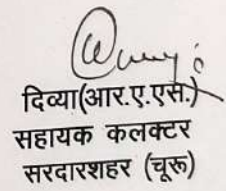 दिव्या(आर.ए.एस.)
सहायक कलक्टर
सरदारशहर (चूरू)